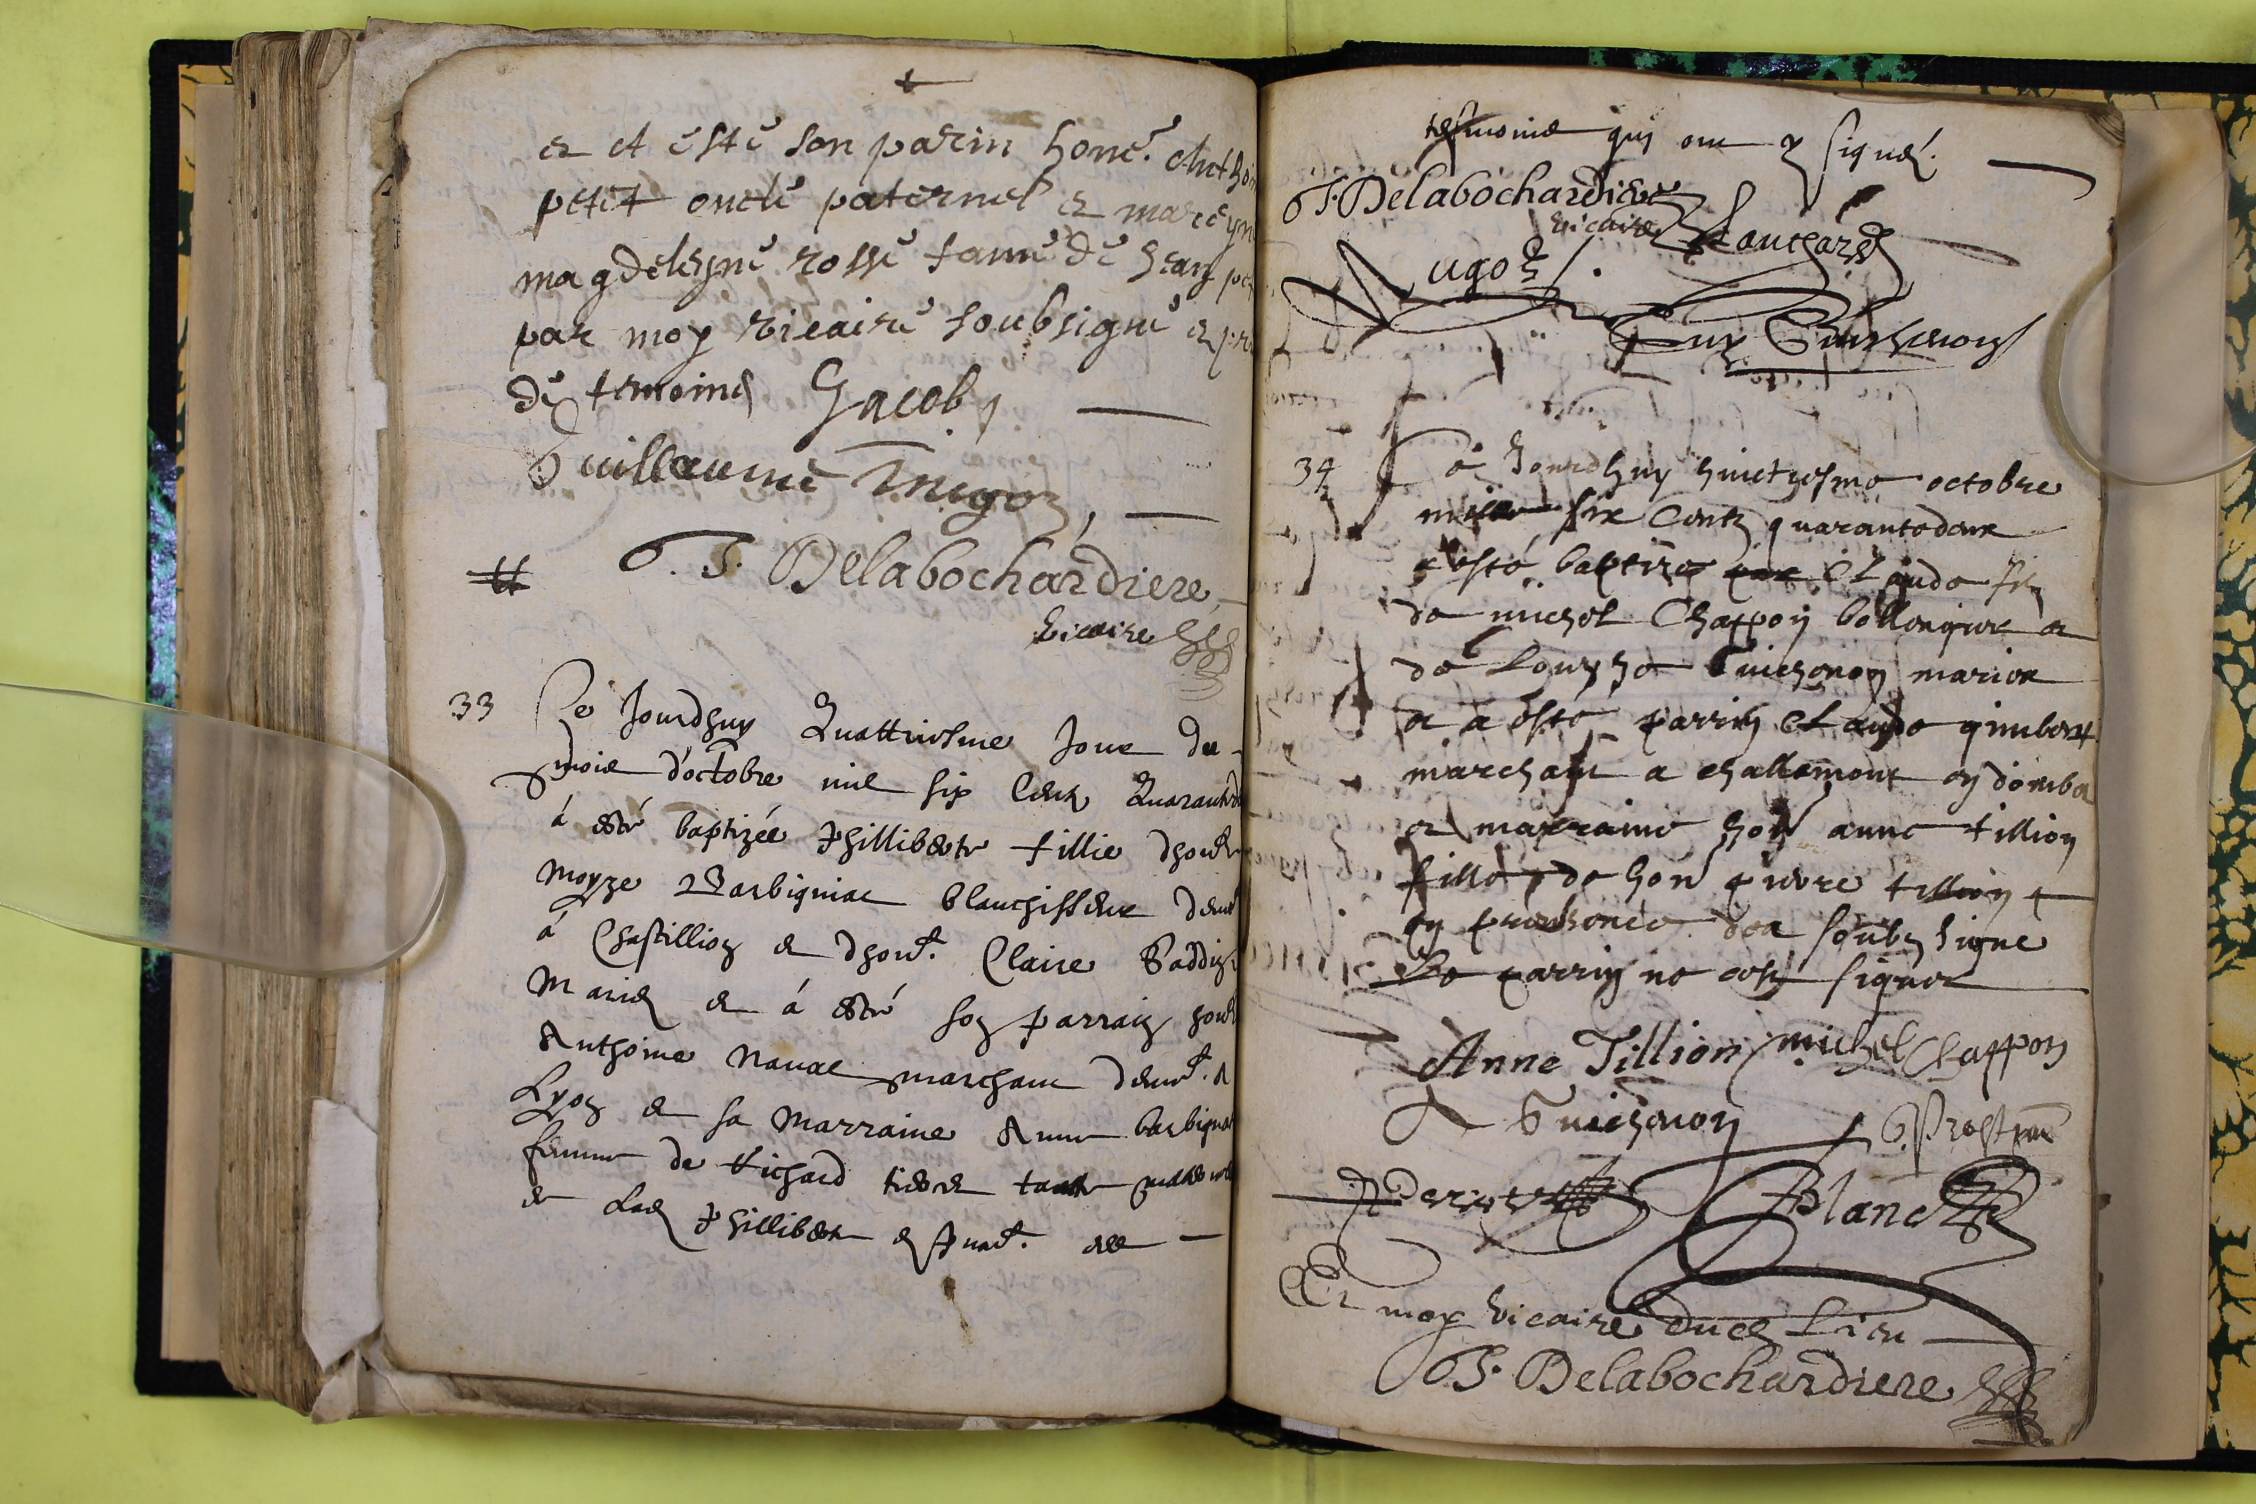 et et esté son parin honé. Antho
petit oncle paternel et mareyn
magdeleyne rosse fame de Jean
par moy vicaire soubsigné et pr
de temoins Jacob
Guillaume
J. Delabochardiere
vicaire
33 Ce Jourdhuy Quattriesme Jour du
mois d'octobre mil six Centz Quarant
á esté baptizée Philliberte fillie dhon
Moyze Barbigniac blanchisseur
á Chastillion et dhon. Claire
Mariez et á esté son parrain hon
Anthoine Naval marchant demt. a
Lyon et sa Marraine Anne barbignac
femme de Richard tante
et Lad Phillibert
tesmoins qui ont signé.
J. Delabochardiere
vicaire
ugoz
Guy Guichenon
34 Ce Jourdhuy huictiesme octobre
mille six Centz quarantedeux
a esté baptizé Claude filz
de michel Chappon bollongier et
de Louyse Guichenon mariez
et a esté parrin Claude gimbert
marchant a challamont en domba
et marraine hon anne tillion
fille de hon pierre tillion
en soubz signe
Le parrin ne
Anne Tillion michel Chappon
Guichenon
Blanc
Et moy vicaire dud Lieu
J. Delabochardiere